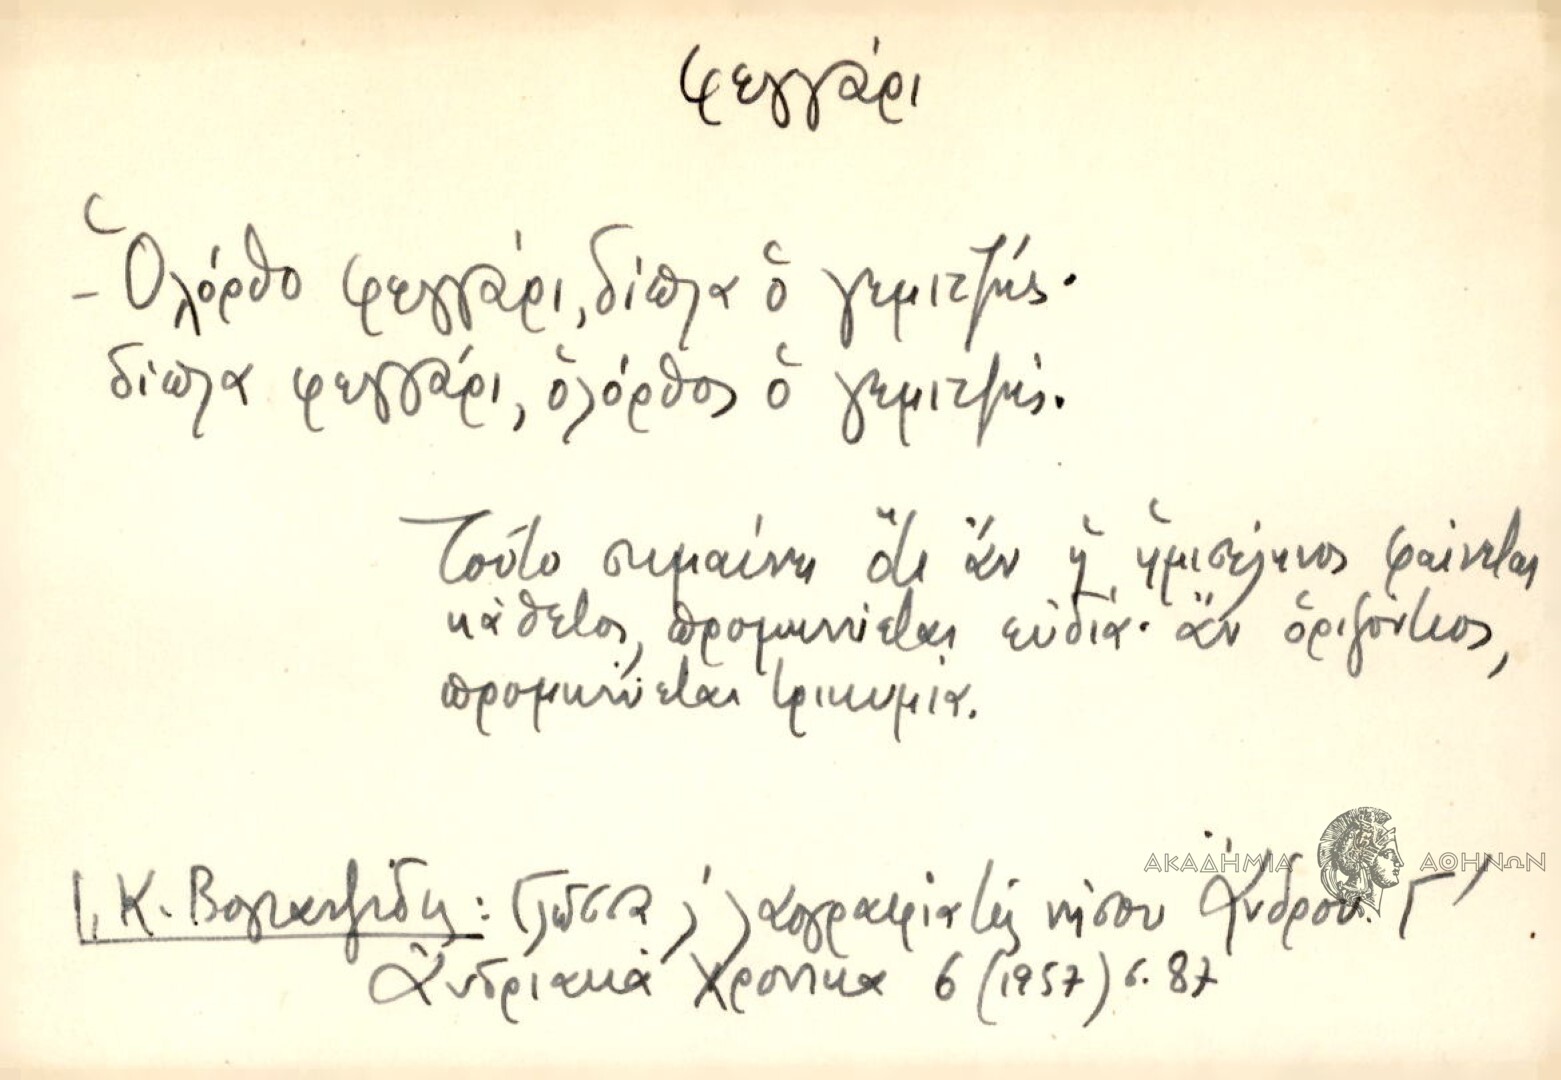 φεγγάρι
- Ὁλόρθο φεγγάρι, δίπλα ὁ γεμιτζής·
δίπλα φεγγάρι, ὁλόρθος ὁ γεμιτζής.
Τοῦτο σημαίνει ὅτι ἄν ἡ ἡμισέληνος φαίνεται
κάθετος, προμηνύεται εὐδία· ἄν ὁριζόντιος,
προμηνύεται τρικυμία.
Ι. Κ. Βογιατζίδη: Γλῶσσα λαογραφία τῆς νήσου Ἄνδρου. Γ'
Ἀνδριακά Χρονικα 6 (1957) σ. 87
ΑΚΑΔΗΜΙΑ ΑΘΗΝΩΝ